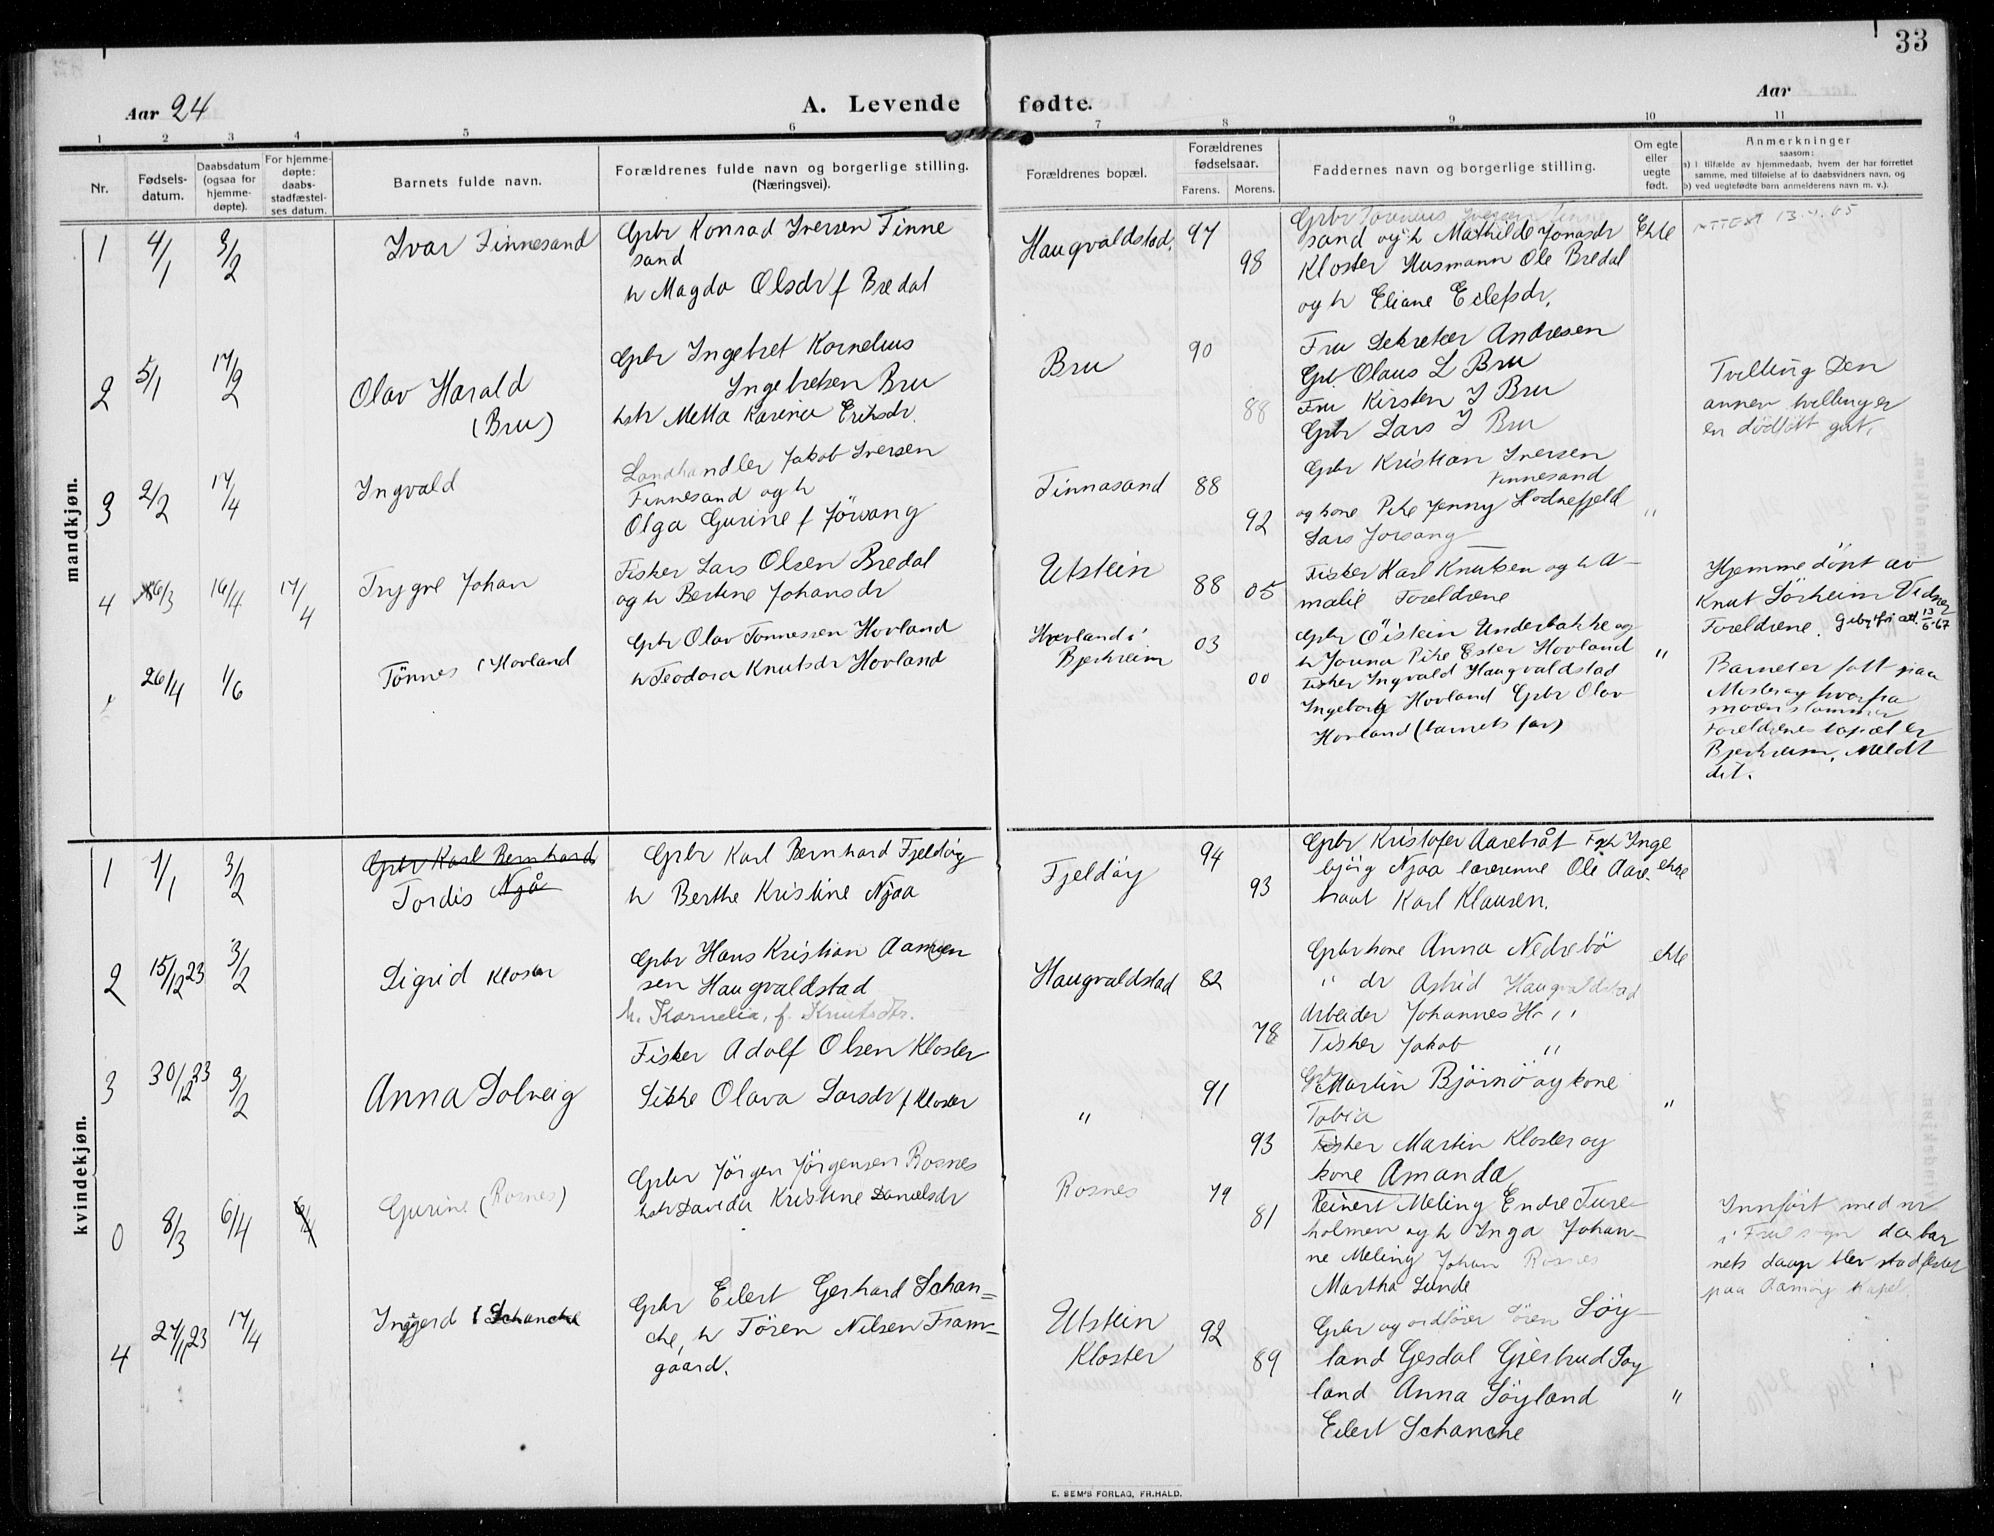 33
Aar 24
A. Levende fødte.
Aar
1 2 3 4 5 6 7 8 9 10 11
Nr.
Fødsels-
datum.
Daabsdatum
(ogsaa for
hjemme-
døpte).
For hjemme-
døpte:
daabs-
stadfæstel-
ses datum.
Barnets fulde navn.
Forældrenes fulde navn og borgerlige stilling.
(Næringsvei).
Forældrenes bopæl.
Forældrenes
fødselsaar.
Farens. Morens.
Faddernes navn og borgerlige stilling.
Om egte
eller
uegte
født.
Anmerkninger
saasom:
a) I tilfælde av hjemmedaab, hvem der har forrettet
samme, med tilføielse af to daabsvidners navn, og
b) ved uegtefødte barn anmelderens navn m. v.).
mandkjøn.
1 4/1 3/2
Ivar Finnesand
Gbr Konrad Iversen Finne
sand
h Magda Olsdr f Bredal
Haugvaldstad.
97
98
Gbr Iversen Finne
sand og h Mathilde Jonasdr
Kloster Husmann Ole Bredal
og h Eliane Eilefsdr.
Ekte
ATTEST 13.4.65
2 5/1 17/2
Olav Harald
(Bru)
Gbr Ingebret Kornelius
Ingebretsen Bru
hstr Metta Karina Eriksdr.
Bru
90
88
Fru Sekretær Andresen
Gbr. Olaus L Bru
Fru Kirsten J Bru
Gbr Lars J Bru
Tvilling Den
annen tvilling er
en dödfött gut.
3 2/2 17/4
Ingvald
Landhandler Jakob Iversen
Finnesand og h
Olga Gurine f Jörsang
Finnasand
88
92
Gbr Kristian Iversen
Finnesand
og kone Pike Jenny Hodnefjeld
Lars Jorsang
"
4 16/3 16/4 17/4
Trygve Johan
Fisker Lars Olsen Bredal
og h Bertine Johansdr
Utstein
88 05
Fisker Karl Knutsen og h A-
malie Foreldrene
Hjemmedöpt av
Knut Sörheim Vidner
Foreldrene. Geb.fri att. 13/6-67
26/4 1/6
Tönnes (Hovland
Gbr Olav Tonnessen Hovland
h Teodora Knutsdr Hovland
Hovland i
Bjerkreim
03
00
Gbr Öistein Underbakke og
h Jonna Pike Ester Hovland
Fisker Ingvald Haugvaldstad
Ingeborg Hovland Gbr Olav
Hovland (barnets far)
"
Barnet er fött paa
Mosteröy hvorfra
moren stammer
Foreldrenes bopæl er
Bjerkreim. Meldt
dit.
kvindekjøn.
1 1/1 3/2
Gbr Karl Bernhard
Tordis Njå
Gbr Karl Bernhard Fjeldöy
h Berthe Kristine Njaa
Fjeldöy
94
93
Gbr Kristofer Aarebråt Frk Inge
björg Njaa lærerinne Ole Aare-
braat Karl Klausen.
ekte
2 15/12 23 3/2
Sigrid Kloster
Gbr Hans Kristian
sen Haugvaldstad
h. Kornelia, f. Knutsdtr.
Haugvaldstad
82
78
Gbr kone Anna Nedrebö
" dr Astrid Haugvaldstad
Arbeider Johannes H "
Fisker Jakob "
ekte
3 30/12 23 3/2
Anna Solveig
Fisker Adolf Olsen Kloster
Sikke Olava Larsdr f Kloster
"
91
93
Gbr Martin Björnö og kone
Tobia
Fisker Martin Kloster og
kone Amanda
"
0 8/3 6/4
Gurine (Rosnes)
Gbr Jörgen Jörgensen Rosnes
hstr Davida Kristine Danielsdr
Rosnes
79
81
Reinert Meling Endre Ture-
holmen og h Inga Johan-
ne Meling Johan Rosnes
Martha Lunde
Innfört med nr
i Fruesogn da bar
nets daap blev stadfestet
paa Aamöy Kapel.
4 27/11 23 17/4
Inggjerd (Schanche
Gbr Eilert Gerhard Schan-
che, h Tören Nilsen Fram-
gaard.
Utstein
Kloster
92
89
Gbr og ordförer Sören Söy-
land Gesdal Gjertrud Söy
land Anna Söyland
Eilert Schanche
"
E. SEM'S FORLAG, FR.HALD.